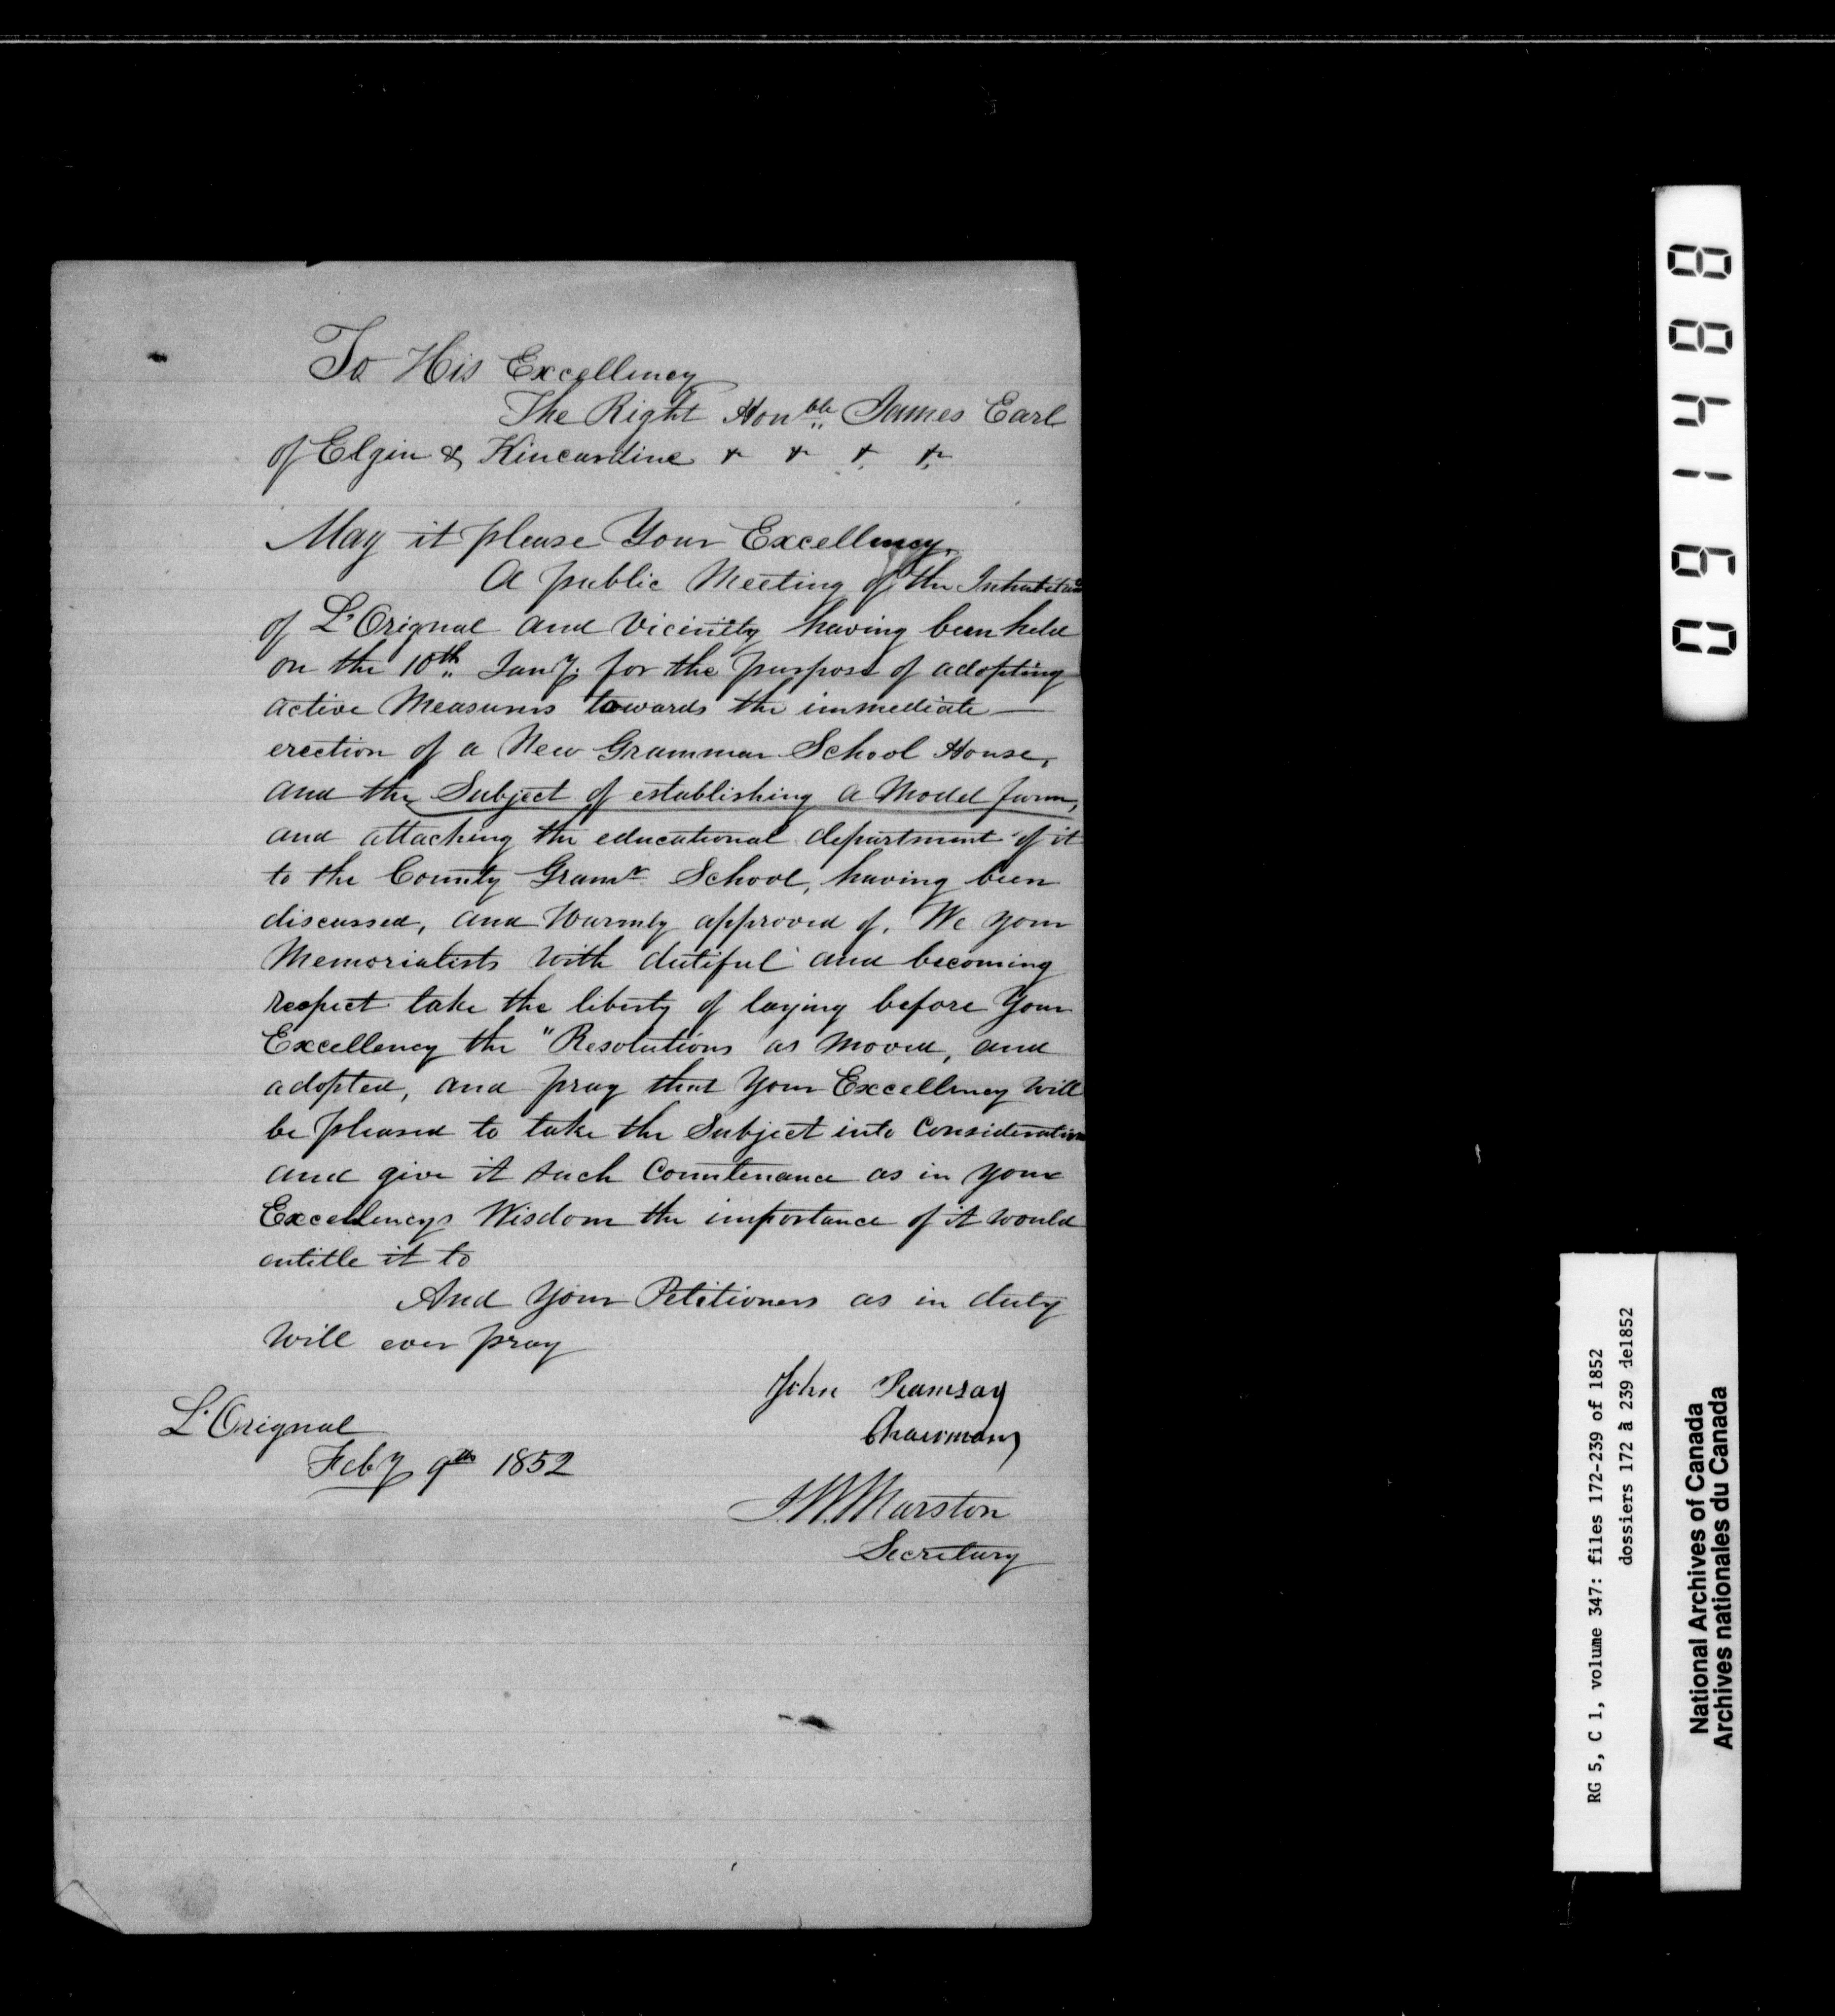 To His Excellency
The Right Honble James Earl
of Elgin & Kincardine + + + +
May it please Your Excellency.
A public Meeting of the Inhabitants
of L'Orignal and Vicinity having been held
on the 10th Jany. for the purpose of adopting
active Measures towards the immediate —
erection of a New Grammar School House,
and the Subject of establishing a Model farm,
and attaching the educational department of it
to the County Gramr School, having been
discussed, and Warmly approved of. We your
Memorialists with dutiful and becoming
respect take the liberty of laying before Your
Excellency the "Resolutions as moved, and
adopted, and pray that Your Excellency will
be pleased to take the Subject into Consideration
and give it such Countenance as in your
Excellencys Wisdom the importance of it would
entitle it to
And Your Petitioners as in duty
Will ever pray
John Ramsay
Chairman
L'Orignal
Feby 9th 1852
J.W. Marston
Secretary
091488
RG 5, C 1, volume 347: files 172-239 of 1852
dossiers 172 à 239 de1852
National Archives of Canada
Archives nationales du Canada